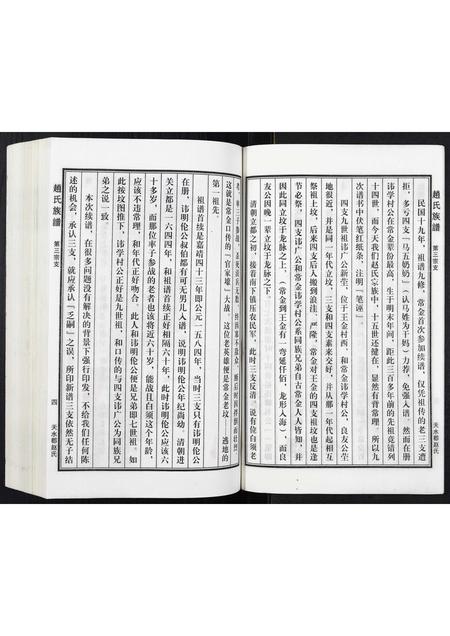 趙氏族譜
第三宗支
民国十九年，祖谱九修，常金首次参加续谱，仅凭祖传的老三支遭
拒，多亏四支「马五奶奶」（认马姓为干妈）力荐，免强入谱。然而在册
讳学村公在常金辈份最高，生于明末年间，距此三百多年前的先祖竟错列
十四世，而今天我们赵氏宗族中，十五世还健在，显然有背常理。所以九
次谱书中伏笔红纸条，注明「笔诬」。
四支九世祖讳广公新茔，位于王金村西，和常金讳学村公、良友公茔
地很近，并是同一年代立坟，三支和四支素来交好，并从那一年代起相互
祭祖上坟，后来四支后人搬到浪洼、严隆，常金对王金的四支祖坟也是逢
节必祭，四支讳广公和常金讳学村公系同族兄弟自古常金人人皆知，并
因此同立坟于龙脉之上，（常金到王金有一弯延仟佰，龙形入海），而良
友公因晚一辈立坟于龙脉之下。
清朝立都之初，接着南下镇压农民军，此时三支反清，说有位白须老
这就是常金口传的「官家雄」大战，这位老英雄便是常金老坟，逃地的
第一祖先。
祖谱首续是嘉靖四十三年即公元一五八四年，当时三支只有讳明伦公
在册，讳明伦公叔伯都有可无男儿入谱，说明讳明伦公年纪尚幼，清朝进
关立都是一六四四年，和祖谱首续正好相隔六十年，此时讳明伦公应该六
十多岁，而那位率子参战的老者也该将近六十岁，能战且白须这个年龄，
应该不违常理，和年代正好吻合。此人和讳明伦公便是兄弟即七世祖。如
此按坟图推下，讳学村公正好是九世祖，和口传的与四支讳广公为同族兄
弟之说一致。
本次续谱，在很多问题没有解决的背景下强行印发，不给我们任何陈
述的机会，承认三支，就应承认「乏嗣」之误，所印新谱三支依然无子结
趙氏族譜
第三宗支
四
天水郡赵氏
天水郡赵氏